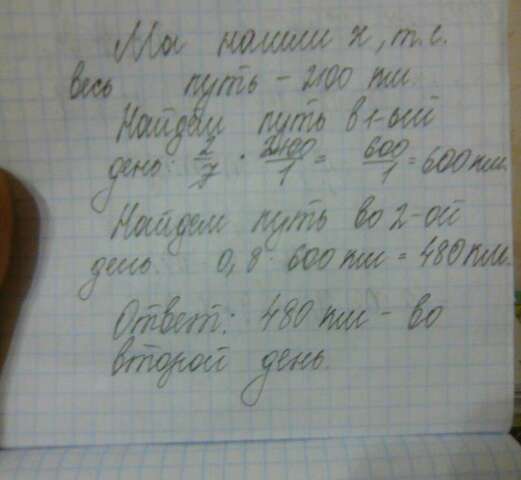 Мы нашли x, т.е.
весь путь – 2100 км
Найдем путь в 1-ый
день: 2/7 · 2100/1 = 600/1 = 600 км.
Найдем путь во 2-ой
день. 0,8 · 600 км = 480 км.
Ответ: 480 км – во
второй день.